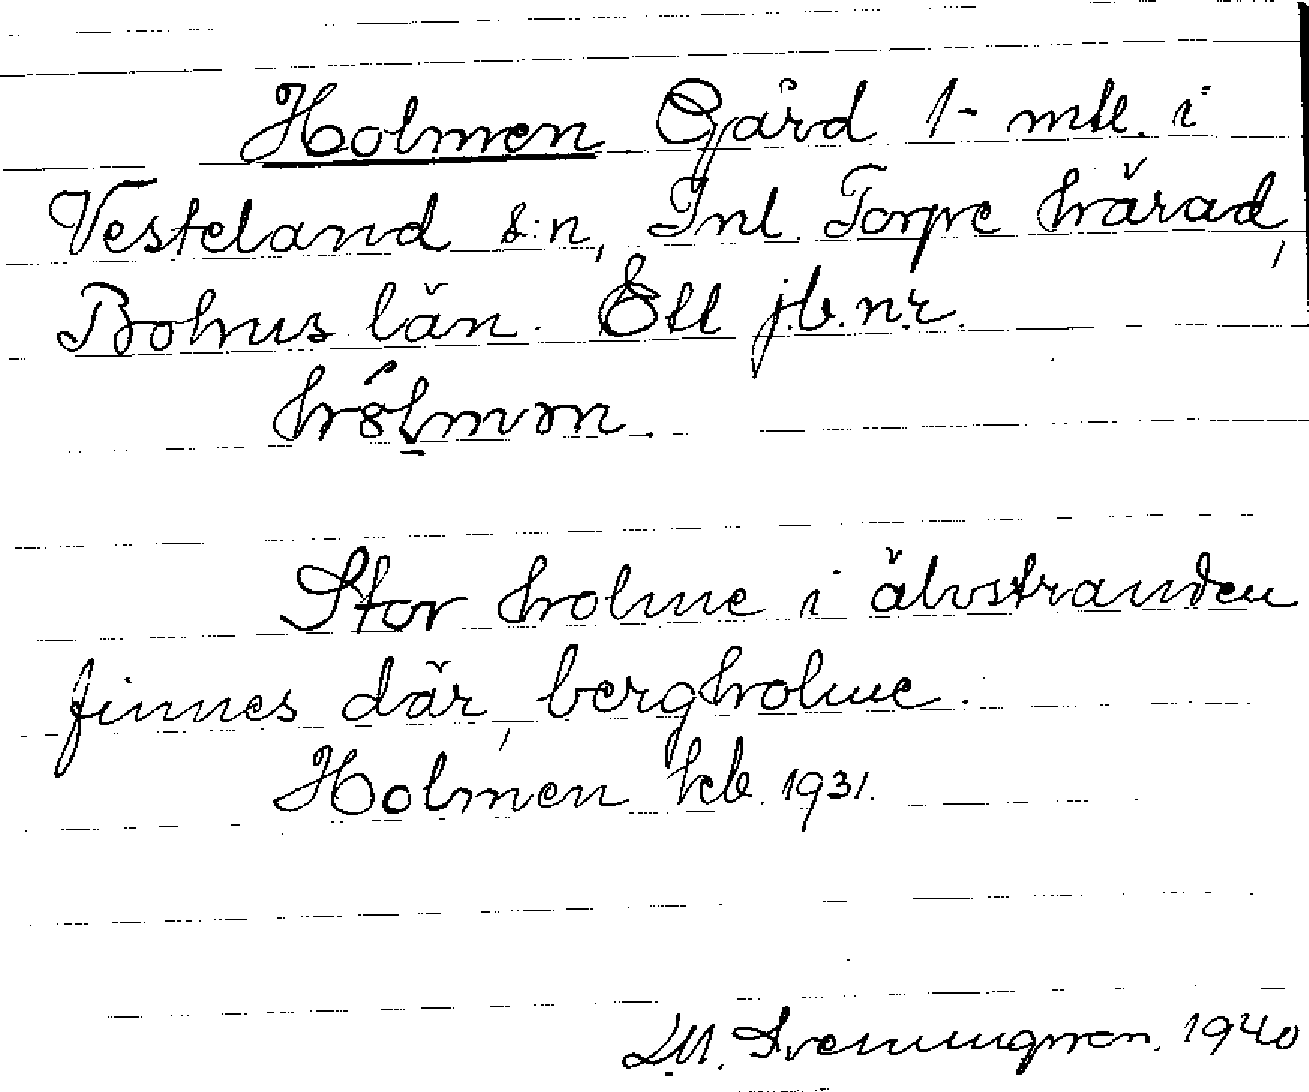 Holmen Gård 1- mtl. i
Vesteland s:n, Inl Torpe härad,
Bohus län. Ett jb.nr.
hólmən.
Stor holme i älvstranden
finnes där, bergholme.
Holmen kb. 1931.
1940